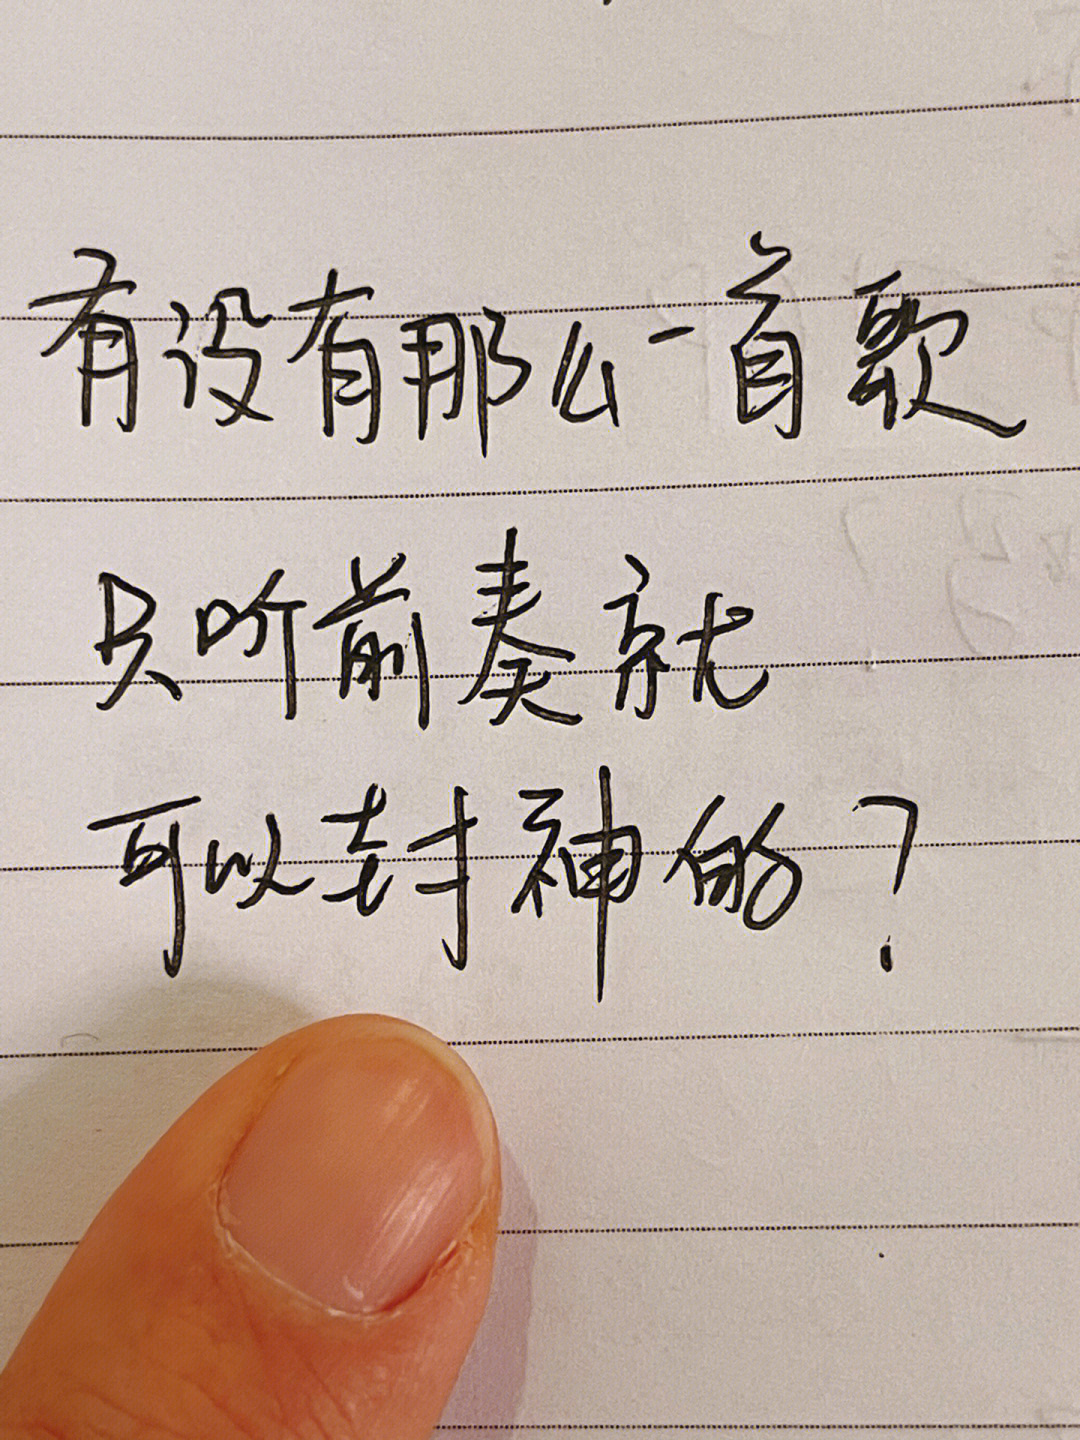 有没有那么一首歌
只听前奏就
可以封神的？